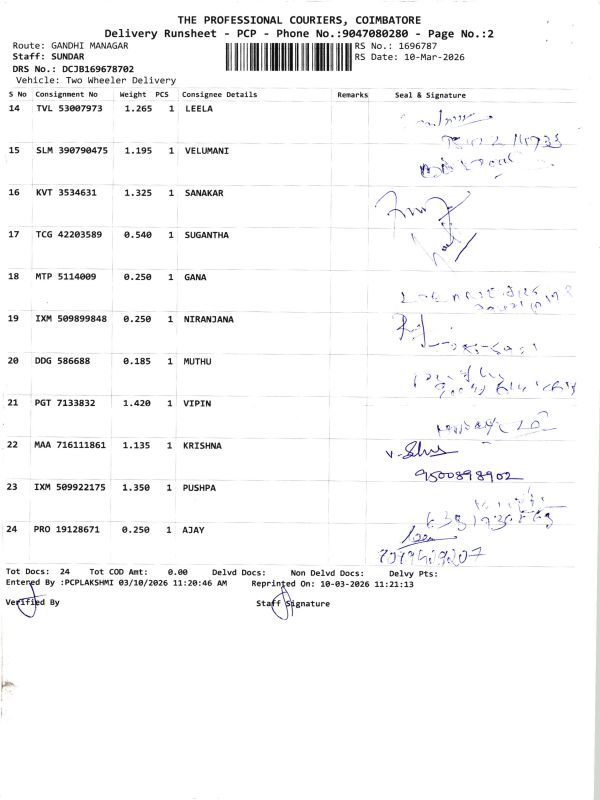 THE PROFESSIONAL COURIERS, COIMBATORE
Delivery Runsheet - PCP - Phone No.:9047080280 - Page No.:2
Route: GANDHI MANAGAR RS No.: 1696787
Staff: SUNDAR RS Date: 10-Mar-2026
DRS No.: DCJB169678702
Vehicle: Two Wheeler Delivery
S No Consignment No Weight PCS Consignee Details Remarks Seal & Signature
14 TVL 53007973 1.265 1 LEELA
15 SLM 390790475 1.195 1 VELUMANI
16 KVT 3534631 1.325 1 SANAKAR
17 TCG 42203589 0.540 1 SUGANTHA
18 MTP 5114009 0.250 1 GANA
19 IXM 509899848 0.250 1 NIRANJANA
20 DDG 586688 0.185 1 MUTHU
21 PGT 7133832 1.420 1 VIPIN
22 MAA 716111861 1.135 1 KRISHNA
9500898902
23 IXM 509922175 1.350 1 PUSHPA
24 PRO 19128671 0.250 1 AJAY
Tot Docs: 24 Tot COD Amt: 0.00 Delvd Docs: Non Delvd Docs: Delvy Pts:
Entered By :PCPLAKSHMI 03/10/2026 11:20:46 AM Reprinted On: 10-03-2026 11:21:13
Verified By Staff Signature